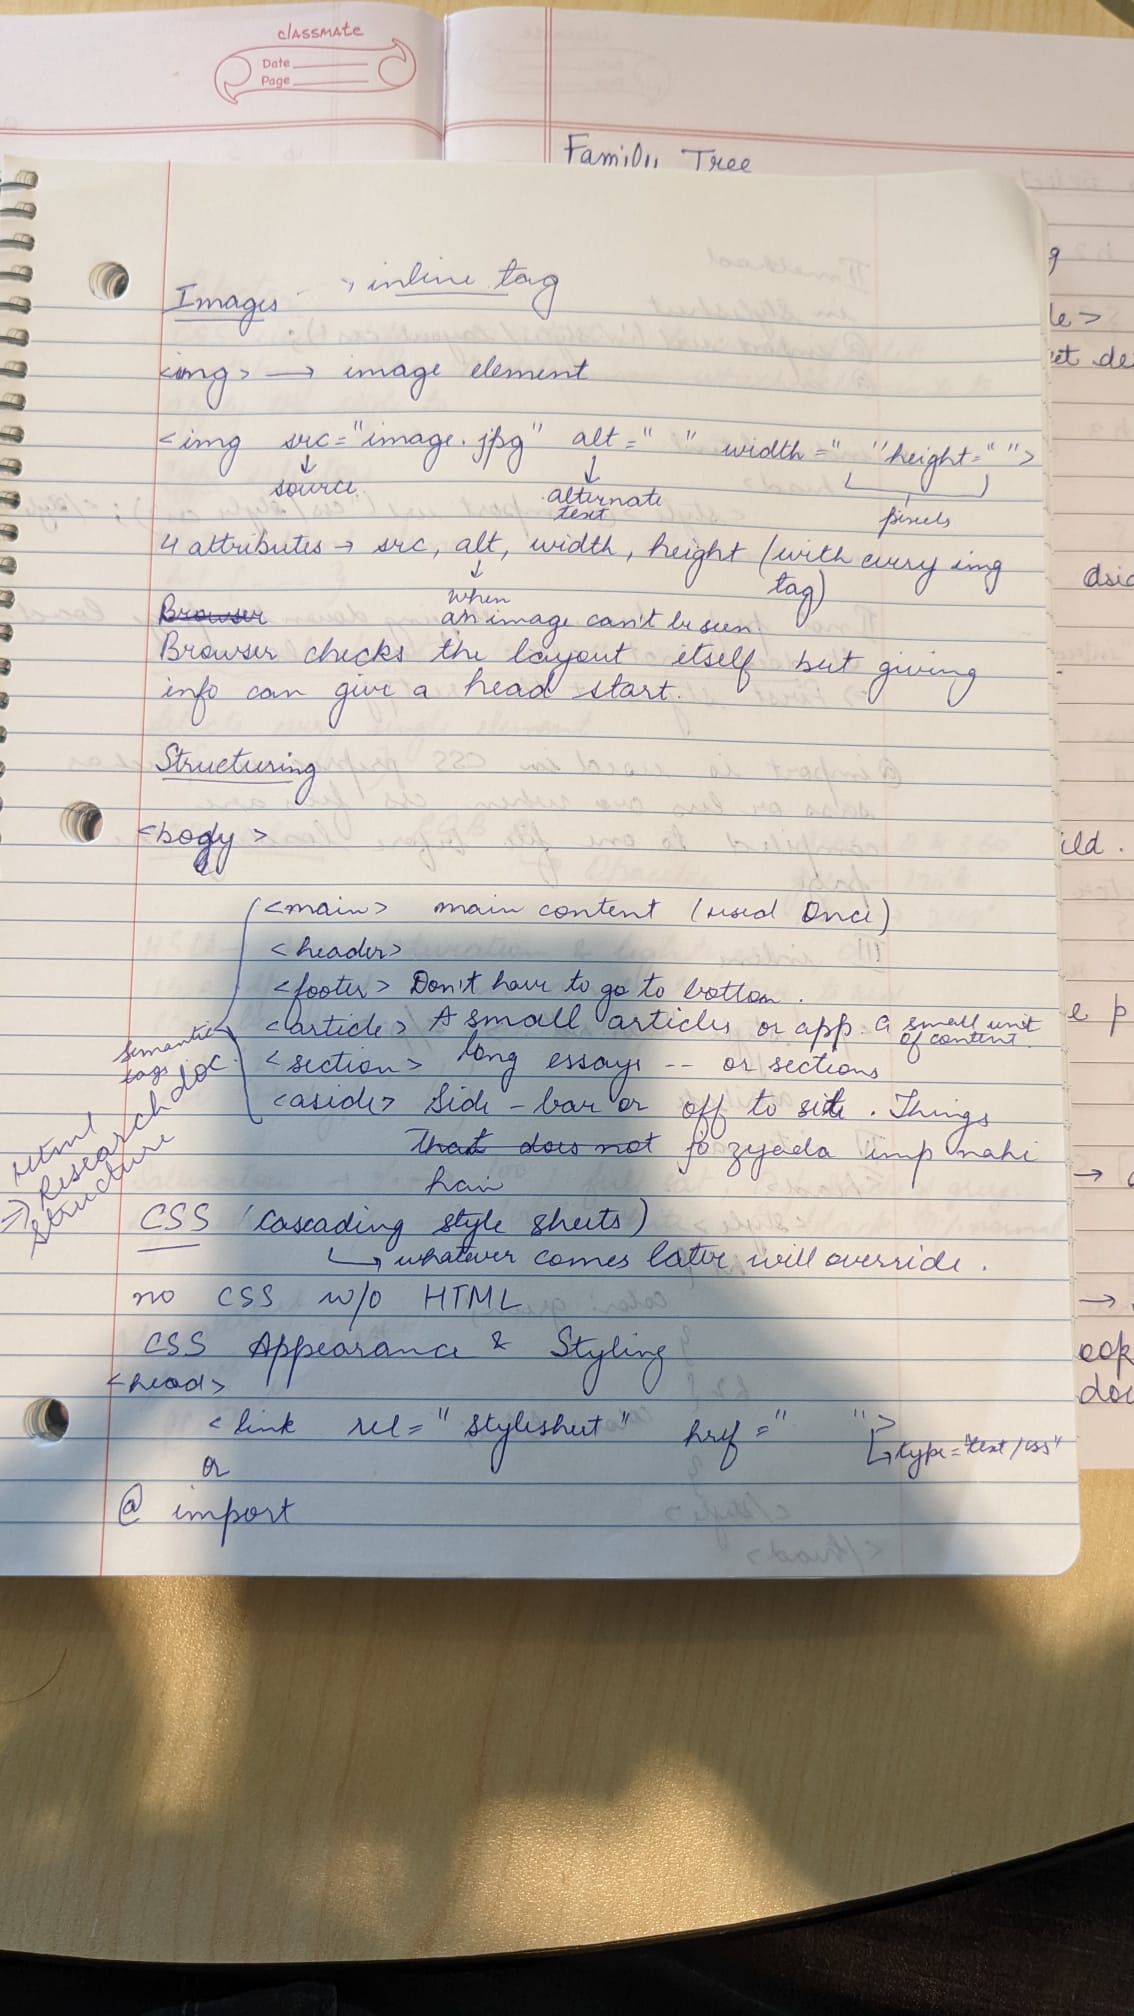 classmate
Date
Page
Family Tree
Images → inline tag
<img> → image element
<img src="image.jpg" alt=" " width=" " height=" ">
↓ source
↓ alternate text
pixels
4 attributes → src, alt, width, height (with every img tag)
↓ when an image can't be seen.
Browser
Browser checks the layout itself but giving
info can give a head start.
Structuring
<body>
<main> main content (used Once)
<header>
<footer> Don't have to go to bottom.
<article> A small articles or app. a small unit of content.
<section> long essays -- or sections
<aside> Side-bar or off to side. Things
That does not jo zyada imp nahi
hai
Semantic tags
Html
⇒ Research doc structure
CSS (Cascading style sheets)
↳ whatever comes later will override.
no CSS w/o HTML
CSS Appearance & Styling
<head>
<link rel="stylesheet" href=" ">
↳ type="text/css"
or
@import
le>
ild.
e p